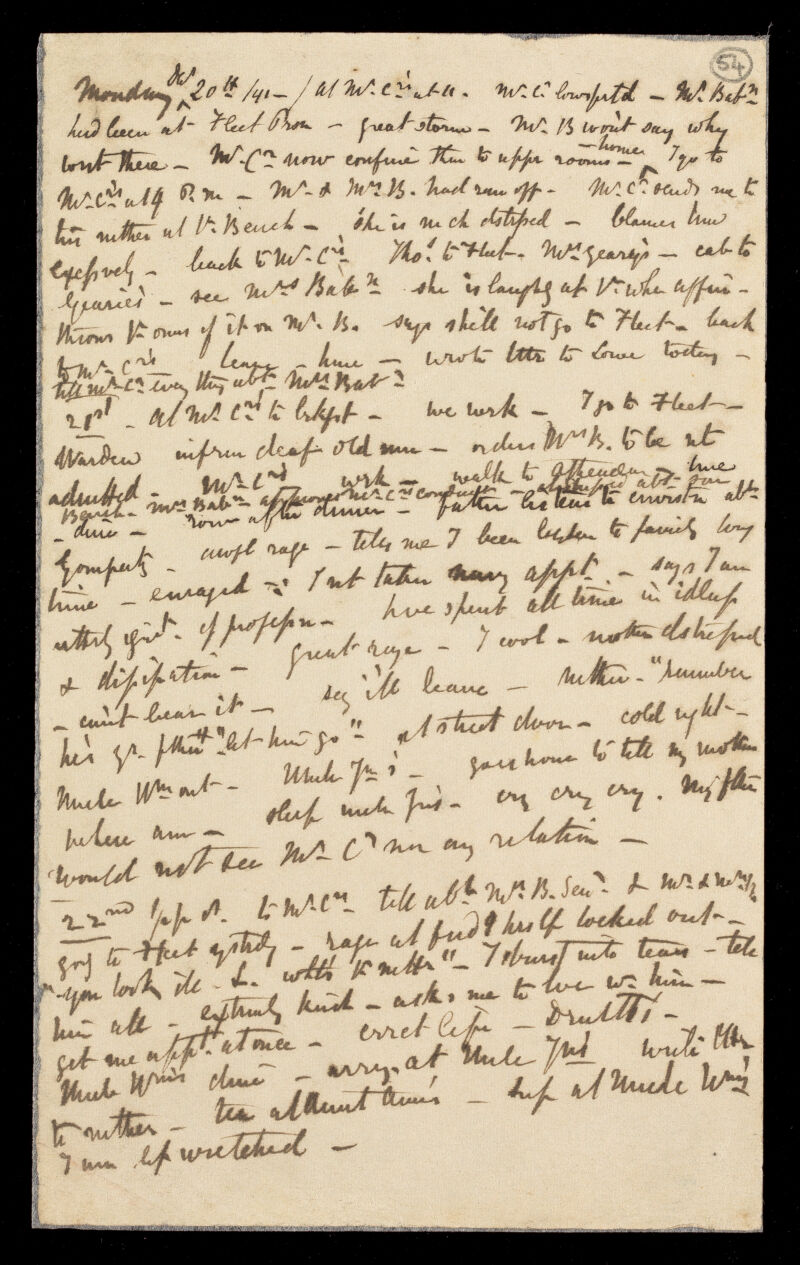 54
Monday Dec 20th /41 - / at Mr. C's at 11. Mr. C. lowspirtd - Mr. Babn
had been at Fleet Prson - great storm - Mr. B won't say why
wont there - Mr. Cn now confine thm to uppr rooms - home I go to
Mr. C's at 9 P.m - Mr. & Mrs B. had run off - Mr. C. sends me to
his mther at Vr. Bench - she is mch dstssed - blames him
excessively - back to Mr. C's Thos to Fleet - Mrs Geary's - cab to
Gearies - see Mrs Babn she is laughg at Ve whle affair -
throws Ve onus of it on Mr. B. says she'll not go to Fleet - back
to Mr. C's leave - hme - wrote lttr to Lowe today -
tell Mr. C. evry thng abt Mrs Babn
21st - at Mr. C's to brkfst - we wrk - I go to Fleet -
Warden infirm deaf old mn - orders Mrs B. to be nt
admitted - Mr. C's wrk - walk to Athenaeum hme
Bench - Mrs Babn approves Mr. C's conduct - abt son
- dine - row aftr dinner - father listens to convrstn abt
Gompertz - awfl rage - tells me I been to family lng
time - enraged I nt taken appt - says I am
uttrly ignt of professn - hve spent all time in idlness
& dissipation - great rage - I cool - mother dstressed
- can't bear it - say I'll leave - mther - "remember
he's yr. fther" "let him go" at street door - cold night -
Uncle Wm out - Uncle Jn's - goes home to tell my mother
where am - sleep uncle Jn's - cry cry cry. My fther
would not see Mr. C nor any relation -
22nd to Mr. C's - tell abt Mrs B. Senr & Mr & Mrs B
gng to Fleet ystrdy - rage at findg hrslf locked out -
"you look ill - &c. wht's Ve mttr" - I burst into tears - tell
him all - extrmly kind - asks me to lve w. him -
get me appt. at once - Druitts' -
Uncle Wm's dine - at Uncle Jn's write lttr
to mther - tea at Aunt Ann's - sup at Uncle Wm's
I am lss wretched -